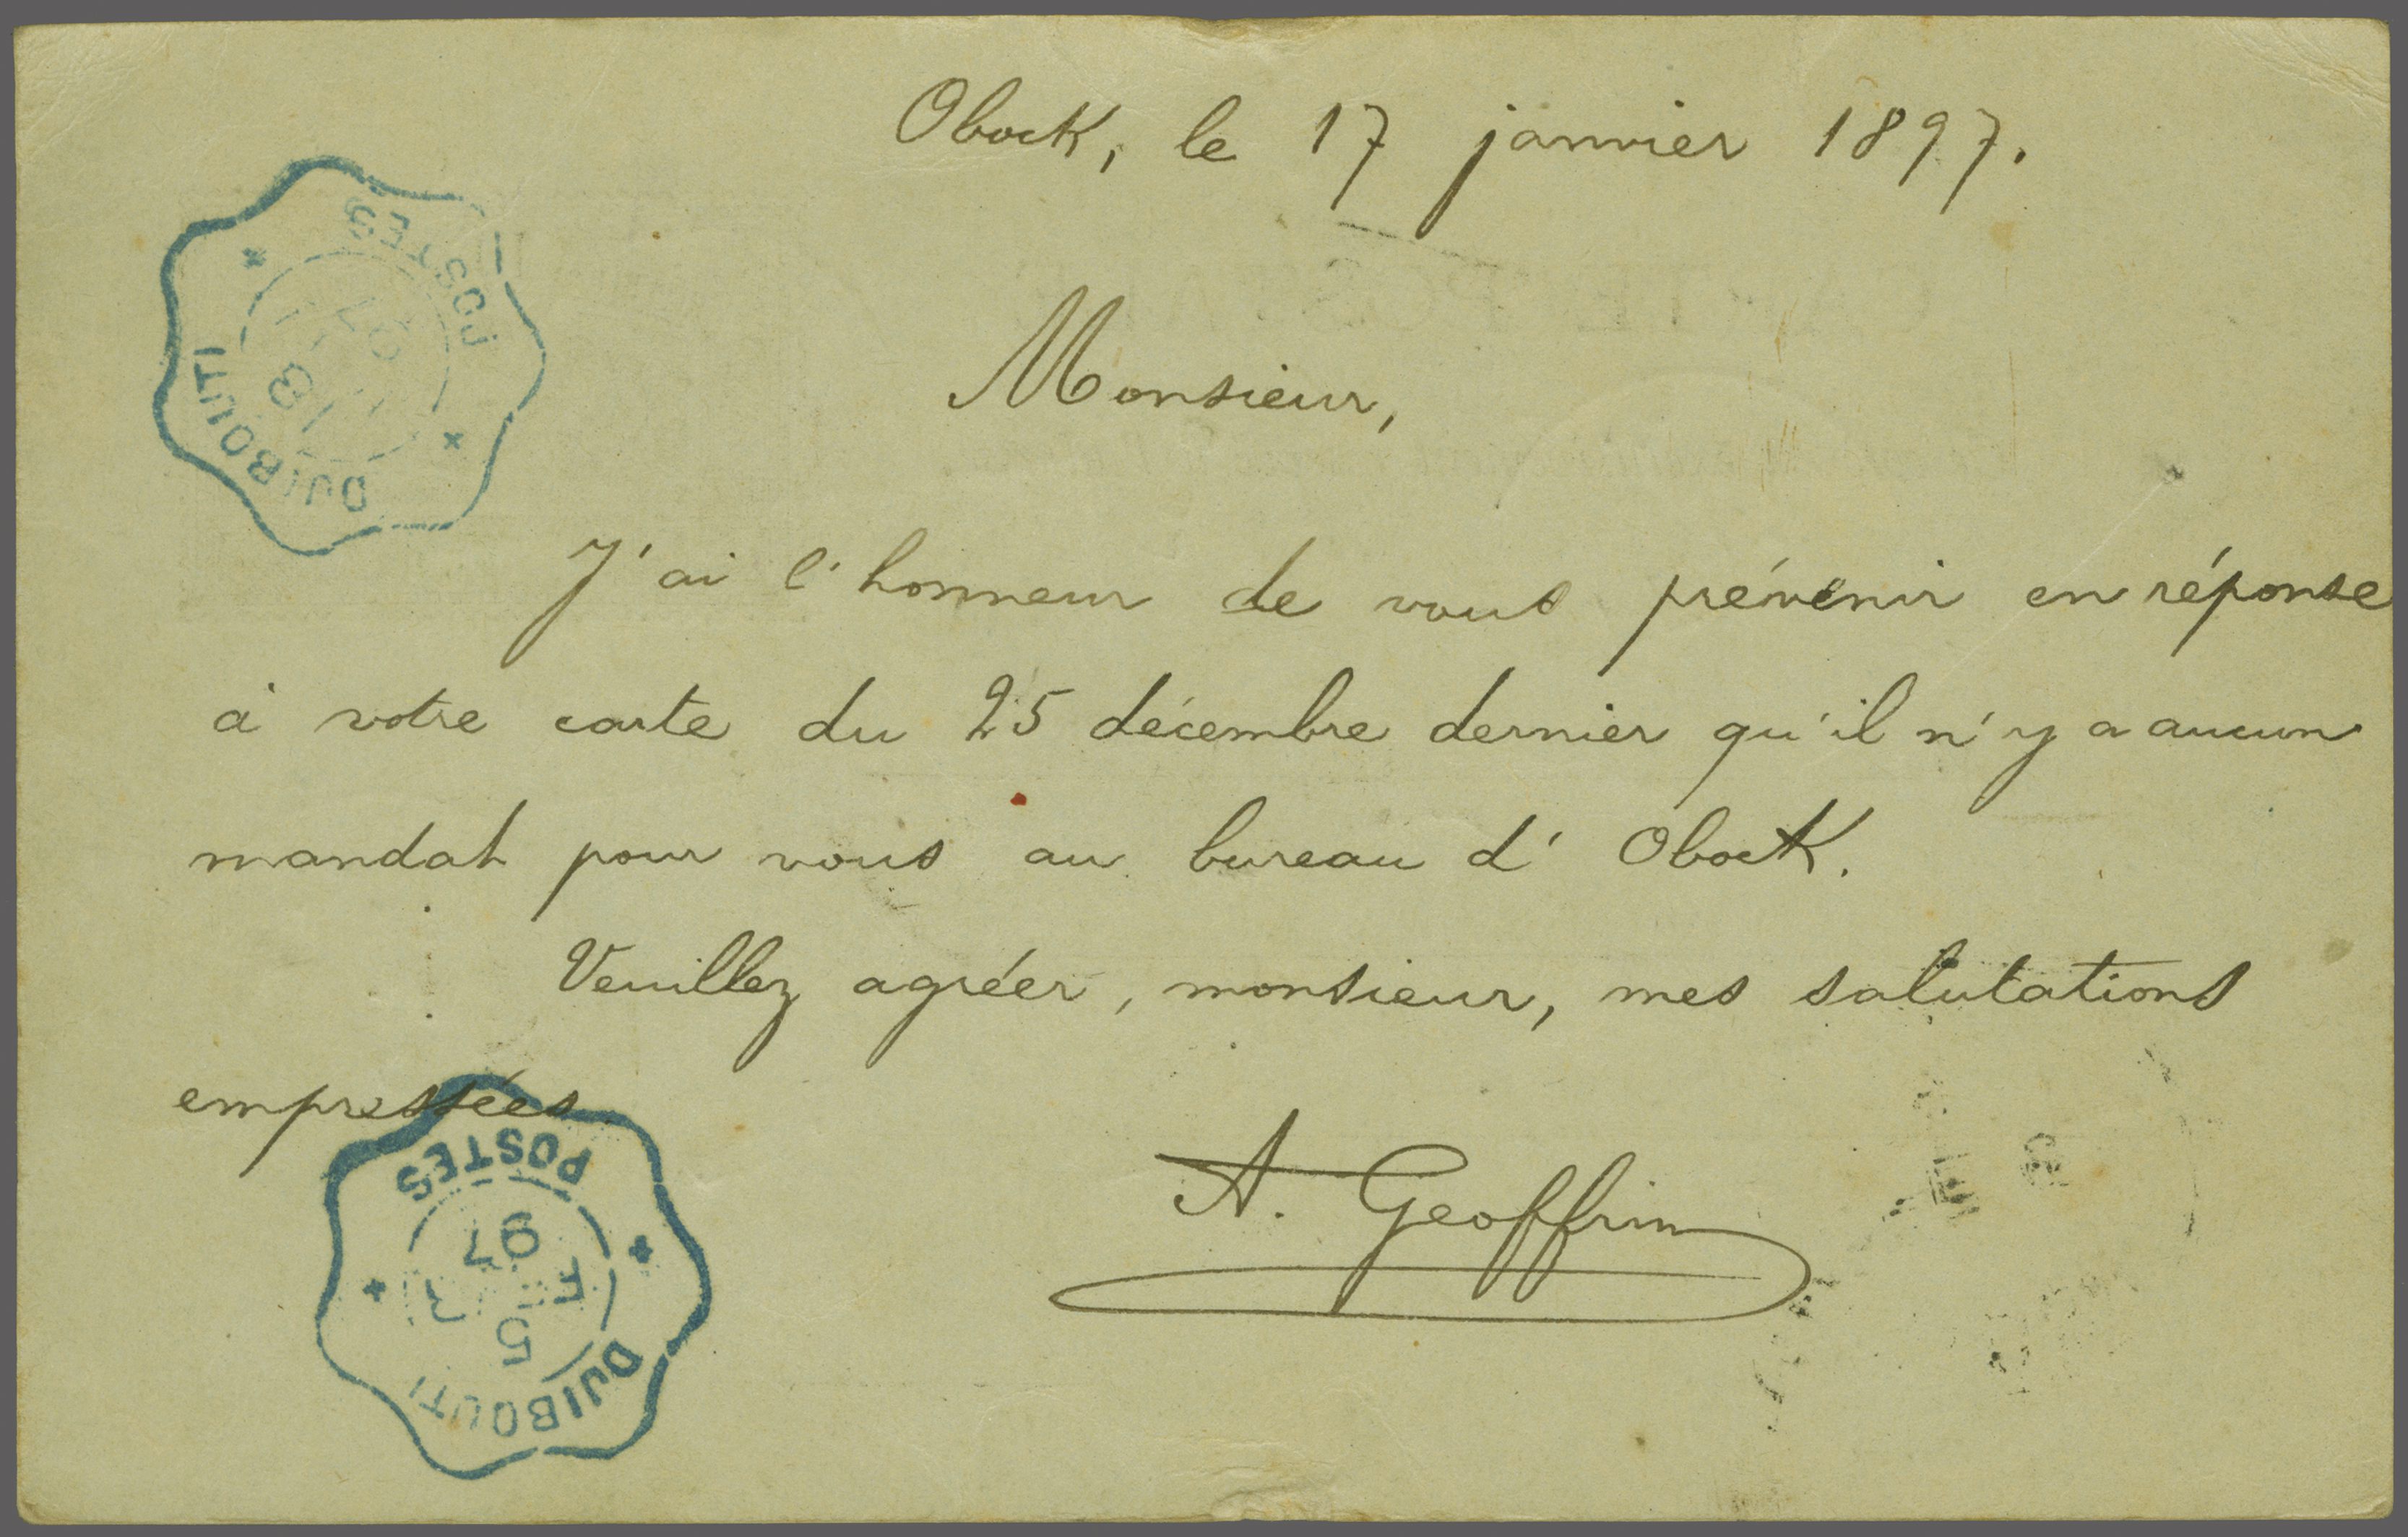 Obock, le 17 janvier 1897.
Monsieur,
POSTES
97
18
DJIBOUTI
J'ai l'honneur de vous prévenir en réponse
à votre carte du 25 décembre dernier qu'il n'y a aucun
mandat pour vous au bureau d' Obock.
Veuillez agréer, monsieur, mes salutations
empressées
A. Geoffrin
POSTES
97
5
DJIBOUTI